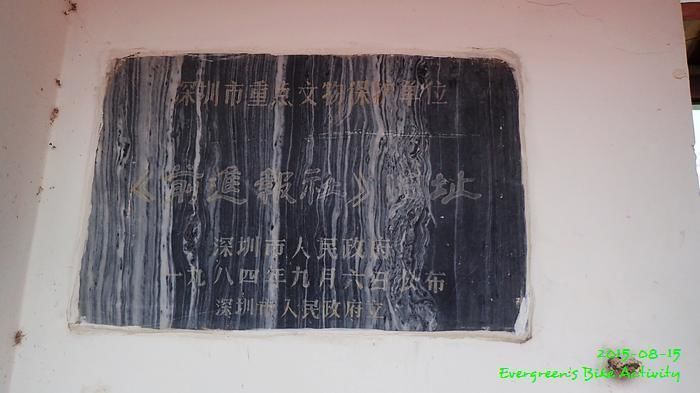 深圳市重点文物保护单位
《前進報社》旧址
深圳市人民政府
一九八四年九月六日公布
深圳市人民政府立
2015-08-15
Evergreen's Bike Activity